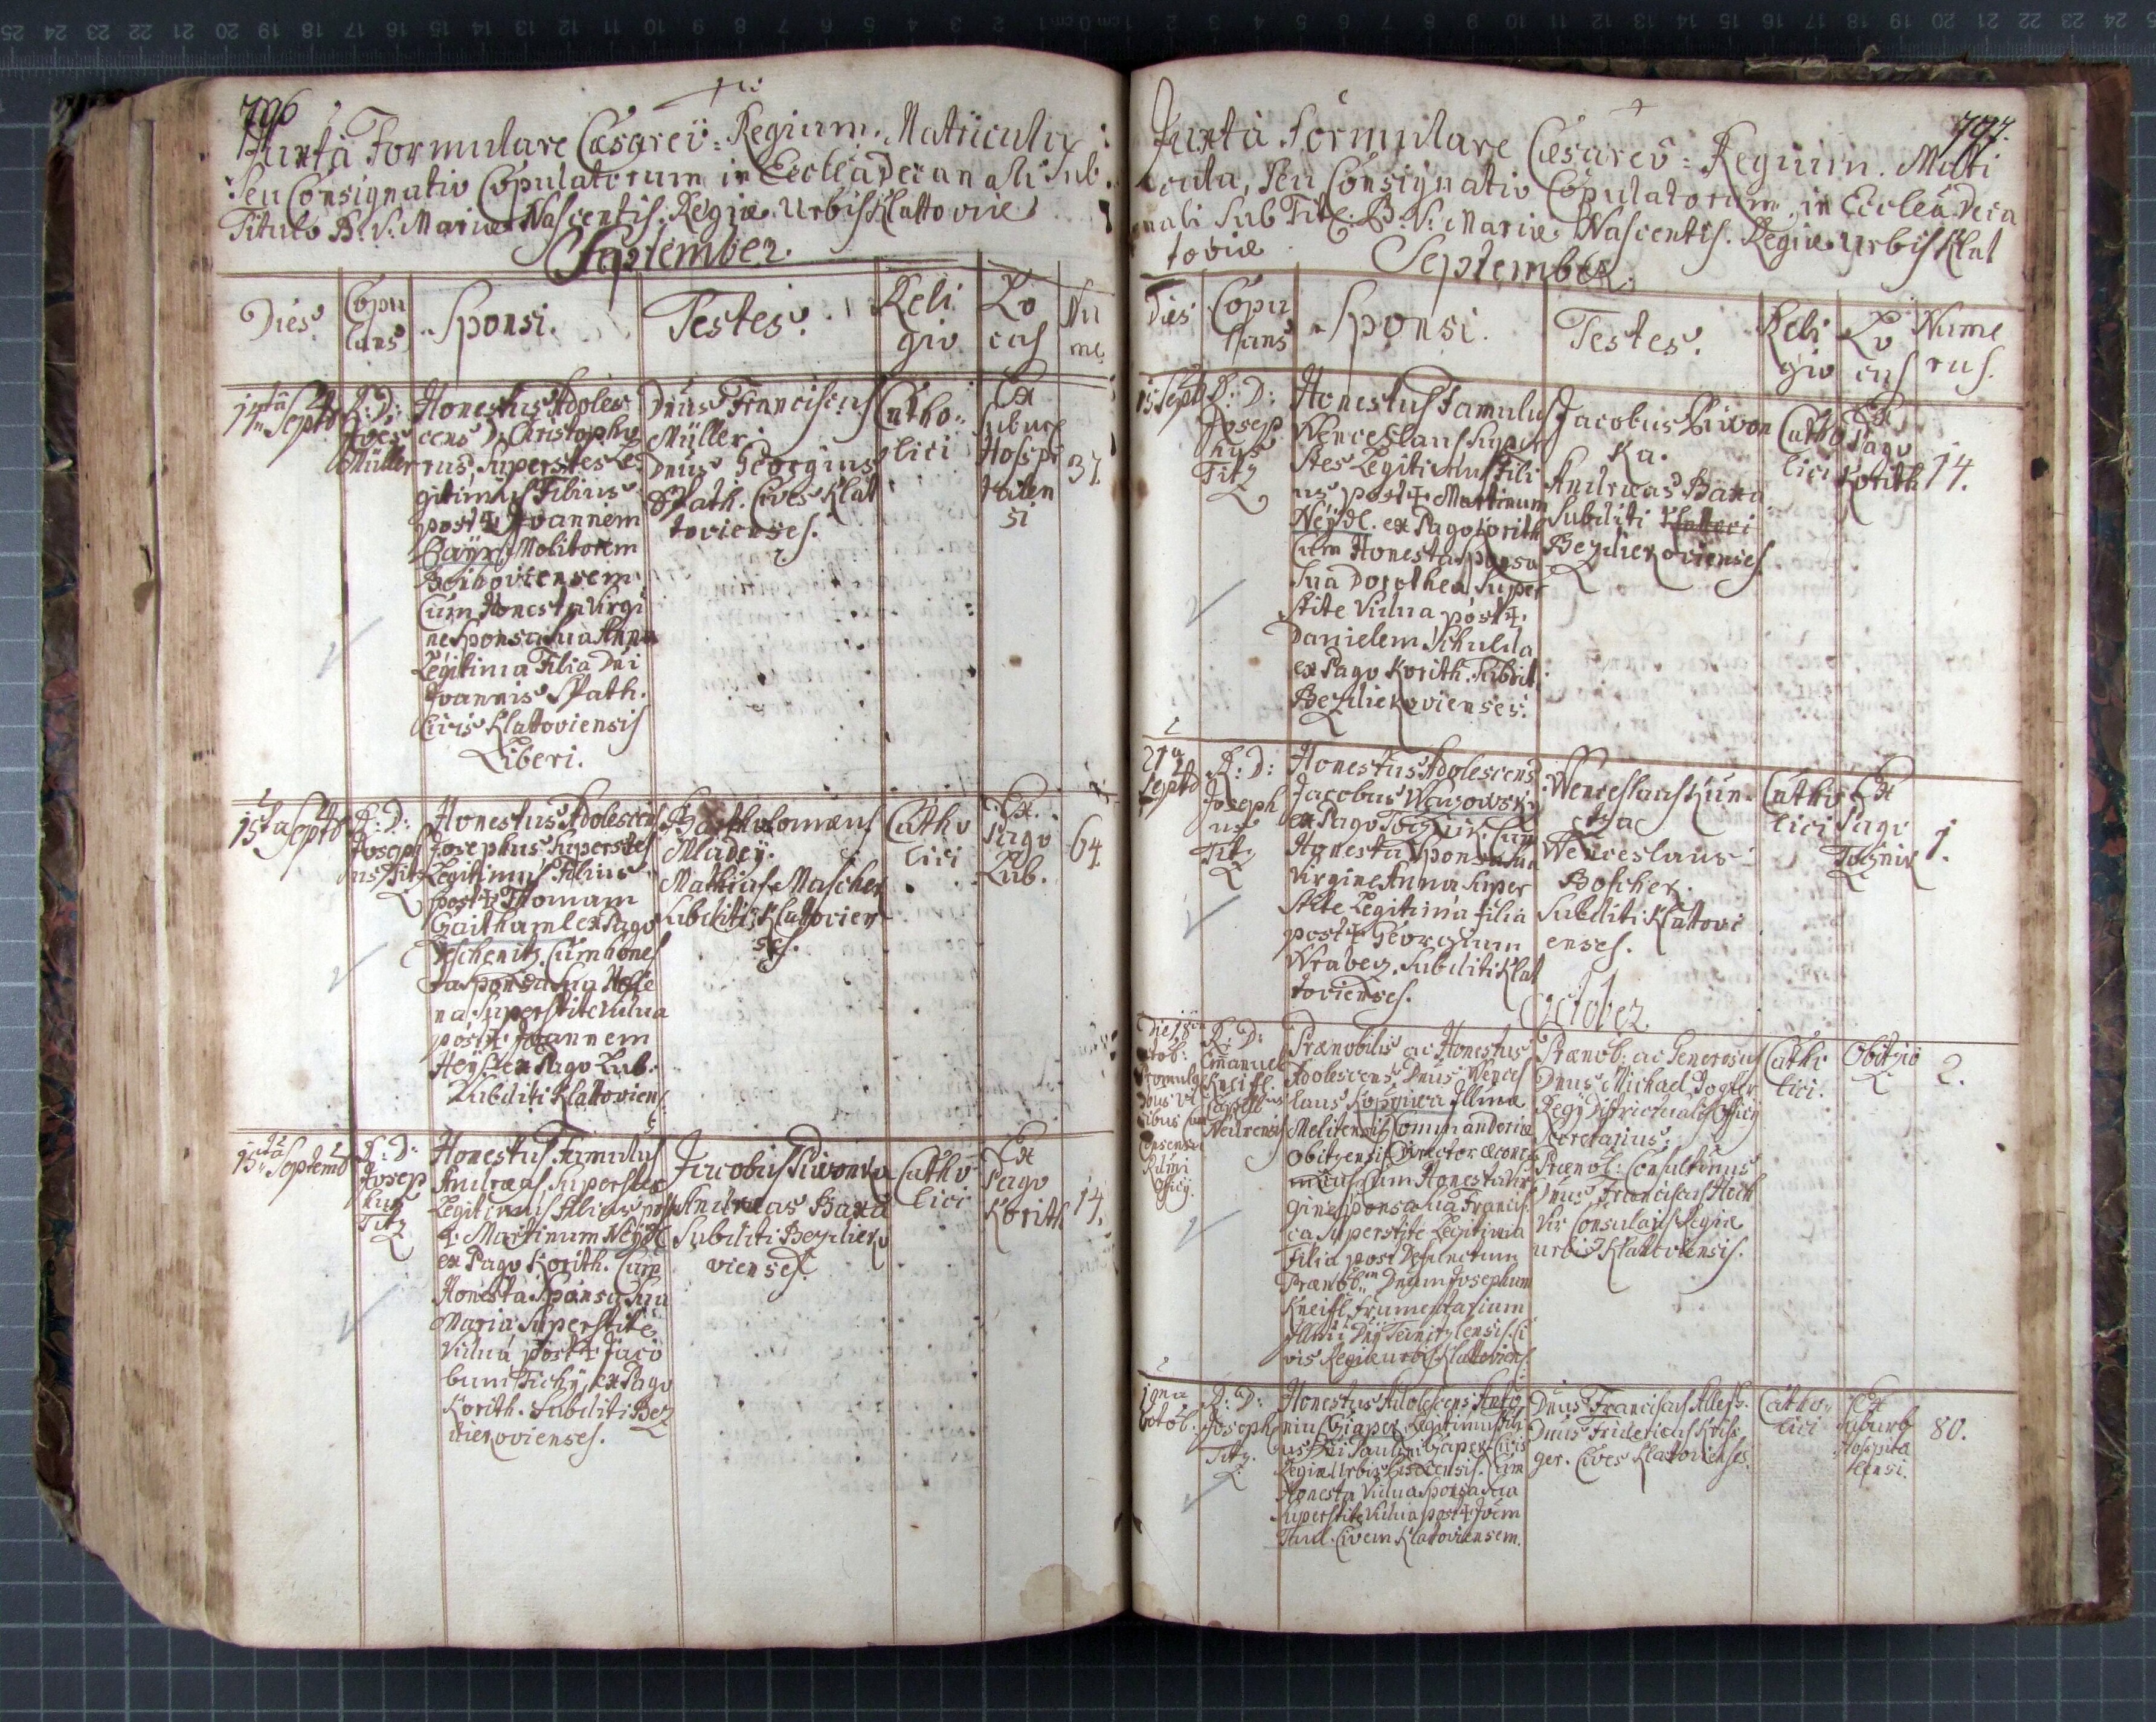 796
Juxta Formulare Cæsareö = Regium. Matricula
Seu Consignatio Copulatorum in Ecclea Decanali Sub
Titulo B: V: Mariæ Nascentis. Regiæ Urbis Klattoviæ
September.
Dies
Copu
lans
Sponsi.
Testes.
Reli
gio
Lo
cus
Nu
me
14ta Septb
R: D:
Müller
Honestus Adoles
cens D. Christopho
rus, Superstes Le
gitimus Filius
post Joannem
Molitorem
Cum Honesta Virgi
ne Sponsa Sua Anna
Legitima Filia Dni
Joannis Spath.
Civis Klattoviensis
Liberi.
Dnus Franciscus
Müller.
Dnus Georgius
Spath. Cives Klat
tovienses.
Catho=
lici
Ex
Suburb
Hospi
talen
si
37.
15ta Septb
R: D:
Joseph
us Titz
Honestus Adolescens
Josephus Superstes
Legitimus Filius
post Thomam
Gaithaml ex Pago
Cum hones
ta Sponsa Sua Hele
na Superstite Vidua
post Joannem
Heysl ex Pago Lub.
Subditi Klattoviens.
Bartholomæus
Mladey.
Mathias Mascher
Subditi Klattovien
ses.
Catho
lici
Ex
Pago
Lub.
64.
15ta Septemb
R: D:
Josep
hus
Titz
Honestus Famulus
Andreas Superstes
Legitimus Filius post
Martinum Neydl
ex Pago Korith. Cum
Honesta Sponsa Sua
Maria Superstite
Vidua post Jaco
bum Tichy, ex Pago
Korith. Subditi Bez
diekovienses.
Jacobus Piwonka
Andreas Baxa
Subditi Bezdieko
vienses.
Catho
lici
Ex
Pago
Korith
14.
797.
Juxta Formulare Cæsareö = Regium. Matri
cula, Seu Consignatio Copulatorum, in Ecclea Deca
nali Sub Tit: B: V: Mariæ Nascentis. Regiæ Urbis Klat
toviæ
September.
Dies
Copu
lans
Sponsi.
Testes.
Reli
gio
Lo
cus
Nume
rus.
15 Septb
R: D:
Josep
hus
Titz
Honestus Famulus
Wenceslaus Super
stes Legitimus Fili
us post Martinum
Neydl. ex Pago Korith
Cum Honesta Sponsa
Sua Dorothea Super
stite Vidua post
Danielem Schulda
ex Pago Korith. Subdit.
Bezdiekovienses.
Jacobus Piwon
ka.
Andreas Baxa
Subditi
Bezdiekovienses
Catho
lici
Ex
Pago
Korith
14.
21ma
Septb
R: D:
Joseph
us
Titz
Honestus Adolescens
Jacobus Wawowsky
ex Pago Tocznik. Cum
Honesta Sponsa Sua
Virgine Anna Super
stite Legitima Filia
post Georgium
Wrabez. Subditi Klat
tovienses.
Wenceslaus Kun.
Wenceslaus
Boscher.
Subditi Klattovi
enses.
Catho
lici
Ex
Pago
Tocznik
1.
October
R: D:
Emanuel
Kneifl.
Prænobilis ac Honestus
Adolescens Dnus Wences
laus Illmæ
Melitensis Commandoriæ
Obitzensis Director œcono
micus Cum Honesta Vir
gine Sponsa Sua Francis
ca Superstite Legitima
Filia post Defunctum
Prænob. Dnum Josephum
Kneifl Frumentarium
Illmi Dni Teinitzlensis. Ci
vis Regiæ urbis Klattoviens.
Prænob: ac Generosus
Dnus Michael
Regÿ Districtualis Officÿ
Secretarius.
Prænob: Consultimus
Dnus Franciscus Hoch
Vir Consularis Regiæ
urbis Klattoviensis.
Catho
lici.
Obitzio
2.
19na
Octob.
R: D:
Joseph
Titz.
Honestus Adolescens Anto
nius Legitimus Fili
us Dni Pauli Civis
Regiæ Urbis Cum
Honesta Vidua Sponsa Sua
Superstite Vidua post
Civem Klattoviensem.
Dnus Franciscus
Dnus Fridericus Krie
ger. Cives Klattovienses.
Catho
lici
Ex
Suburb
Hospita
lensi.
80.